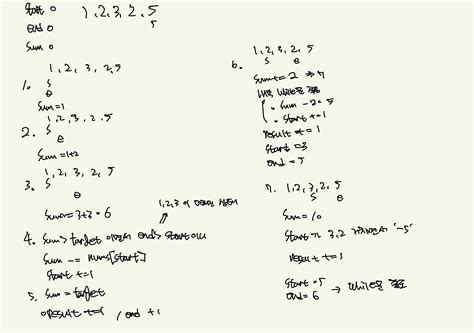 start 0
1, 2, 3, 2, 5
end 0
5
sum 0
1, 2, 3, 2, 5
1.
s
e
sum = 1
1, 2, 3, 2, 5
2.
s
e
sum = 1+2
1, 2, 3, 2, 5
3.
s
e
sum = 3+3 = 6
1, 2, 3 이
4. sum > target 이면서 end > start 이니
sum -= nums[start]
start += 1
5. sum = target
result += 1 / end +1
6.
1, 2, 3, 2, 5
s
e
sum += 2 ⇒ 7
while문
sum -2 = 5
start += 1
result += 1
start = 3
end = 5
7. 1, 2, 3, 2, 5
s
e
sum = 10
start가 3, 2 '~5'
result += 1
start = 5
end = 6 → while문 종료